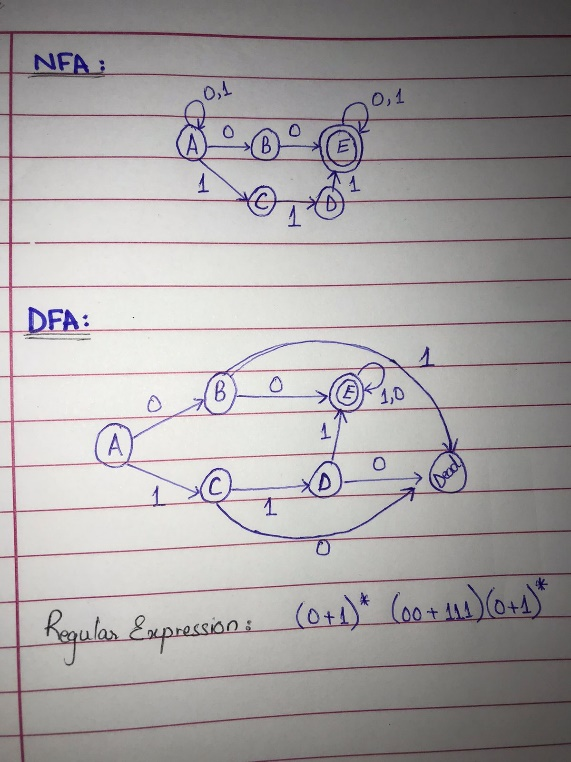 NFA:
0,1
0,1
A 0 B 0 E
1
1
C 1 D
DFA:
1
B 0 E
0
1,0
A
1
1
C 1 D 0 Dead
0
Regular Expression: (0+1)* (00+111)(0+1)*